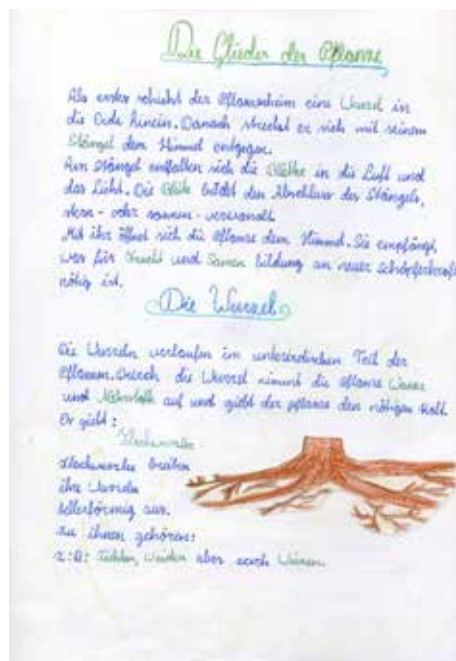 Die Glieder der Pflanze
Als erstes schiebt der Pflanzenkeim eine Wurzel in
die Erde hinein. Danach streckt er sich mit seinem
Stängel dem Himmel entgegen.
Am Stängel entfalten sich die Blätter in die Luft und
das Licht. Die Blüte bildet den Abschluss des Stängels,
stern- oder sonnen-verwandt
Mit ihr öffnet sich die Pflanze dem Himmel. Sie empfängt
was für Frucht und Samen bildung an neuer Schöpferkraft
nötig ist.
Die Wurzel
Die Wurzeln verlaufen im unterirdischen Teil der
Pflanzen. Durch die Wurzel nimmt die Pflanze Wasser
und Nährstoffe auf und giebt der Pflanze den nötigen Halt.
Er giebt:
Flachwurzler
Flachwurzler breiten
ihre Wurzeln
tellerförmig aus.
Zu ihnen gehören:
z:B: Fichten, Weiden aber auch